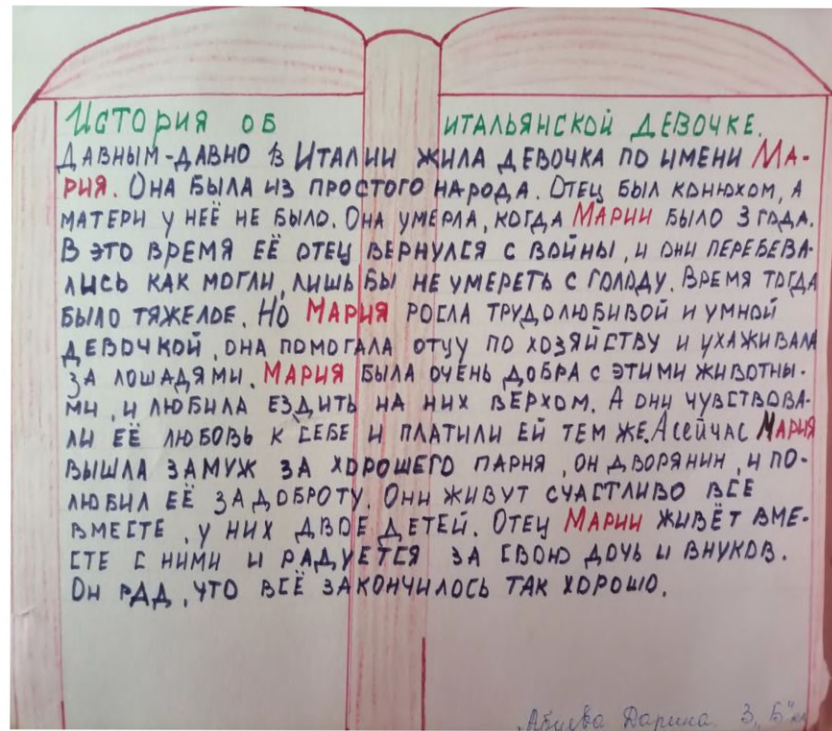 История об итальянской девочке.
Давным-давно в Италии жила девочка по имени Ма-
рия. Она была из простого народа. Отец был конюхом, а
матери у неё не было. Она умерла, когда Марии было 3 года.
В это время её отец вернулся с войны, и они перебева-
лись как могли, лишь бы не умереть с голоду. Время тогда
было тяжелое. Но Мария росла трудолюбивой и умной
девочкой, она помогала отцу по хозяйству и ухаживала
за лошадями. Мария была очень добра с этими животны-
ми, и любила ездить на них верхом. А они чувствова-
ли её любовь к себе и платили ей тем же. А сейчас Мария
вышла замуж за хорошего парня, он дворянин, и по-
любил её за доброту. Они живут счастливо все
вместе, у них двое детей. Отец Марии живёт вме-
сте с ними и радуется за свою дочь и внуков.
Он рад, что всё закончилось так хорошо.
Абуева Дарина. 3 "Б" кл